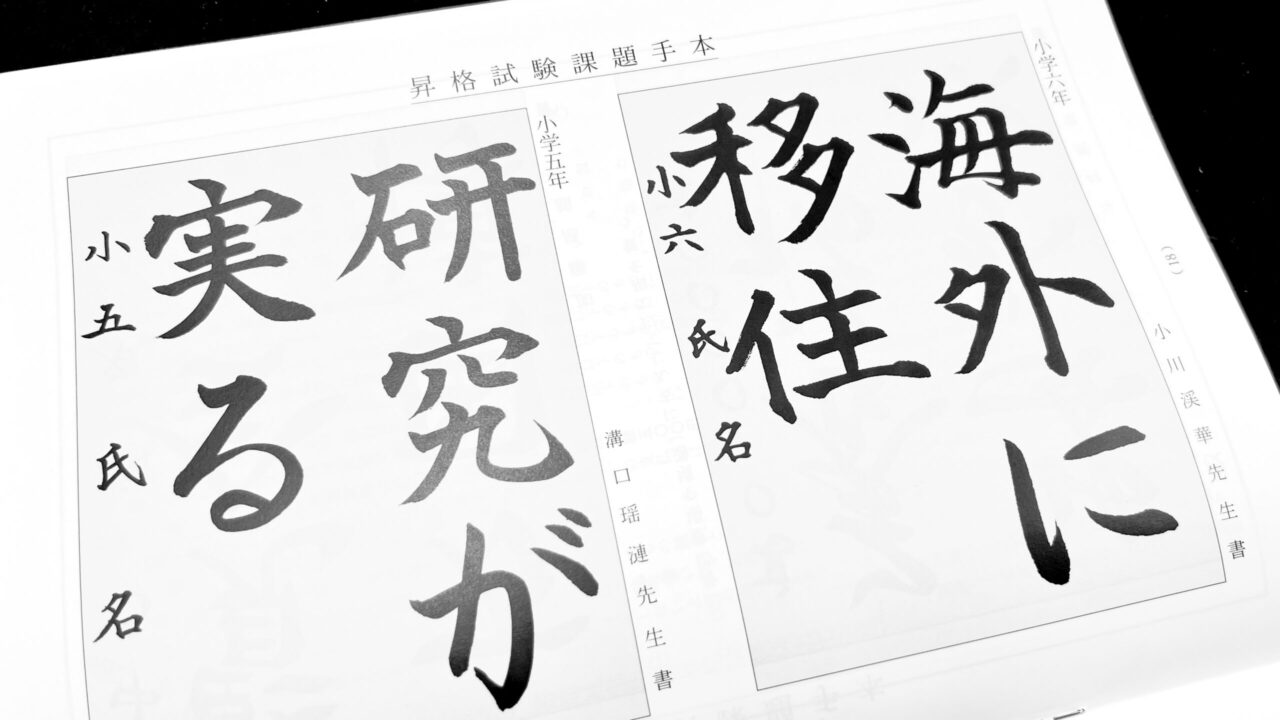 昇格試験課題手本
小学六年
海外に
移住
小六 氏名
小川渓華先生書
(18)
小学五年
研究が
実る
小五 氏名
溝口瑶漣先生書